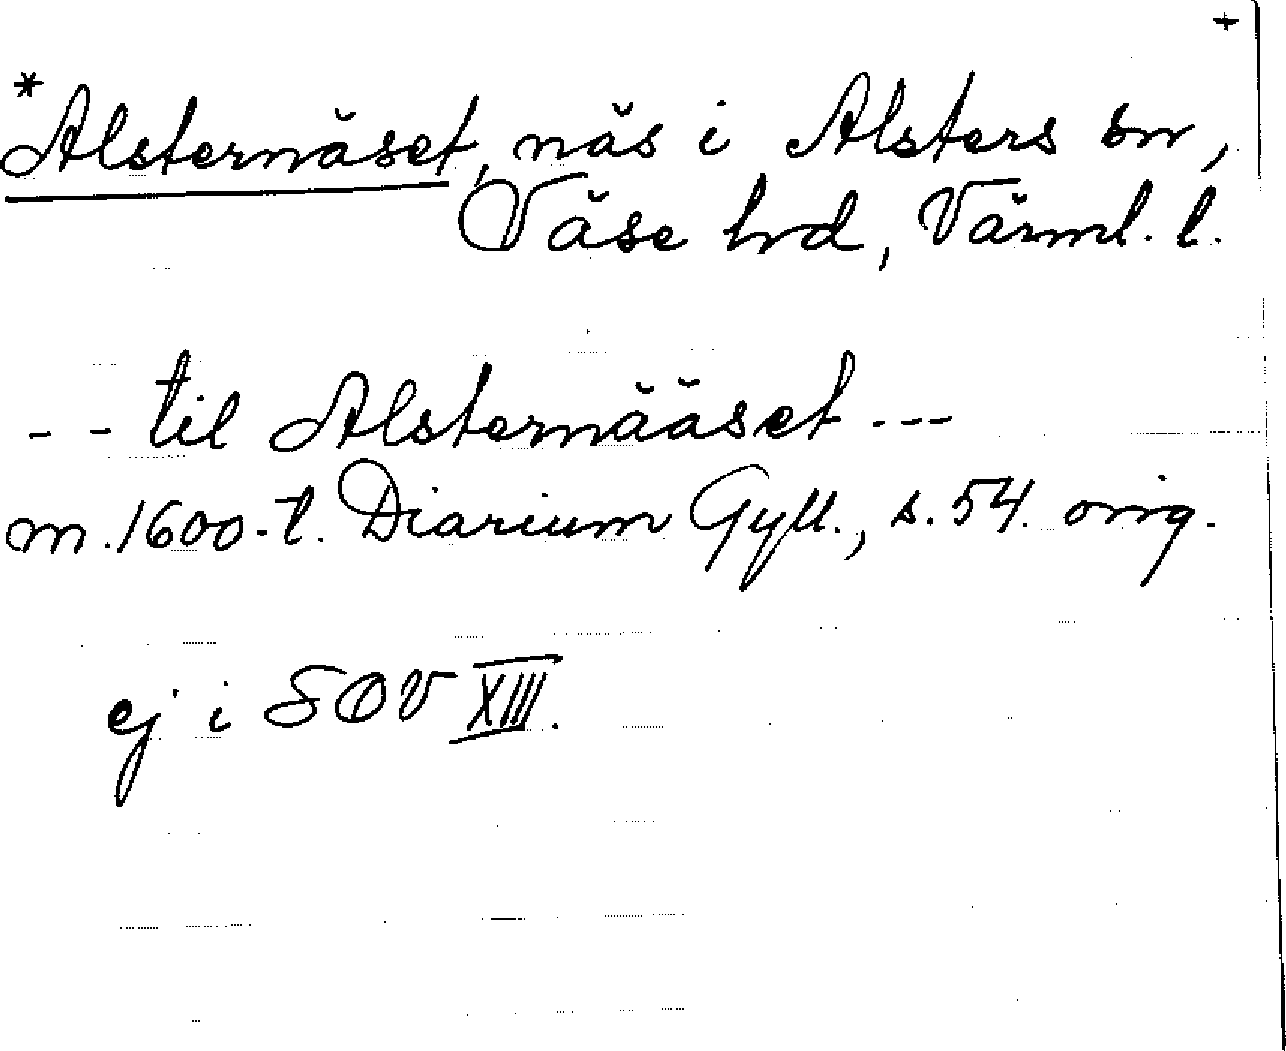 +
*Alsternäset, näs i Alsters sn,
Väse hd, Värml. l.
- - til Alsternääset - - -
m. 1600-t. Diarium Gyll., s. 54. orig.
ej i SOV XIII.